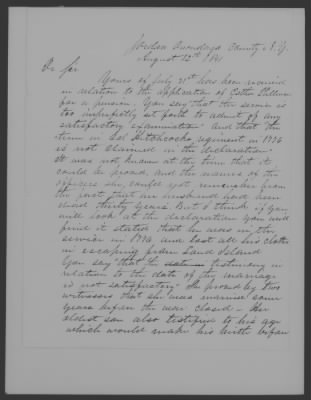 Onondaga County N.Y.
August 12th 1841
Dr Sir
Yours of July 21st has been received
in relation to the application of
for a pension. You say that the service is
too imperfectly set forth to admit of any
satisfactory examination and that the
term in Col Hitchcocks regiment in 1776
is not claimed in the declaration.
It was not known at the time that it
could be proved, and the names of the
officers she could not remember from
the fact that her husband had been
dead thirty years. But I think if you
will look at the declaration you will
find it stated that he was in the
service in 1776 and lost all his clothes
in escaping from Long Island
You say that the testimony in
relation to the date of the marriage
is not satisfactory. She proved by two
witnesses that she was married some
years before the war closed. Her
oldest son also testified to his age
which would make his birth before